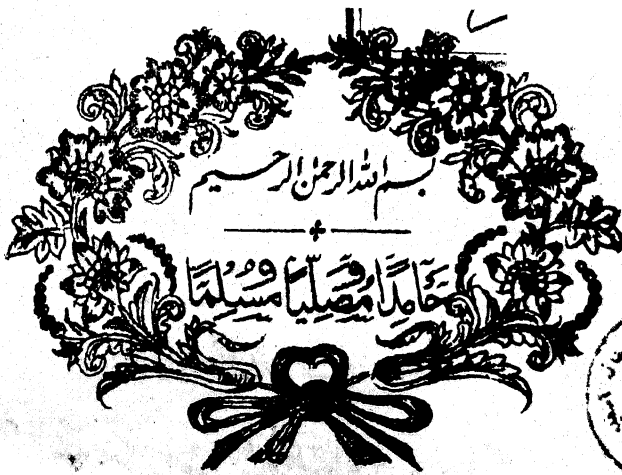 بسم الله الرحمن الرحيم
حَامِدًا وَّمُصَلِّيًا وَّمُسْلِمًا